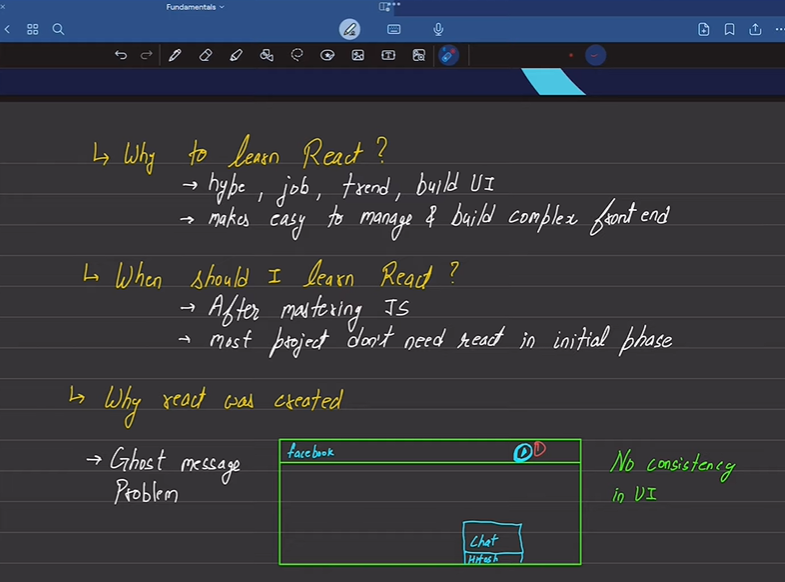 Fundamentals
Why to learn React?
→ hype, job, trend, build UI
→ makes easy to manage & build complex front end
When should I learn React?
→ After mastering JS
→ most project don't need react in initial phase
Why react was created
→ Ghost message
Problem
facebook
1
Chat
Hitesh
No consistency
in UI